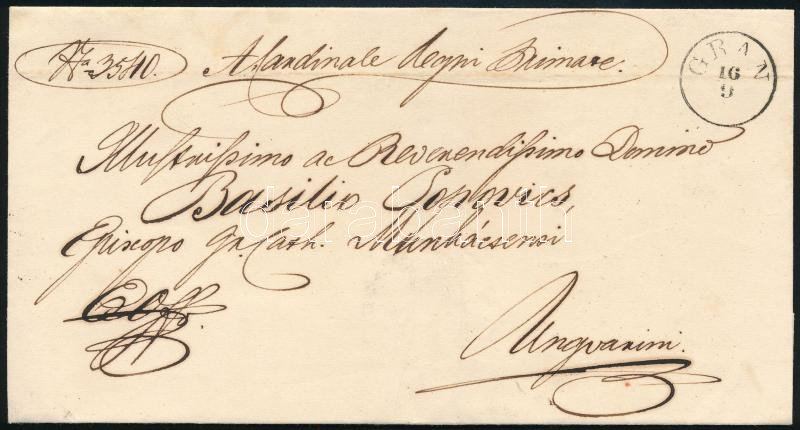 Nro 3540.
A Cardinale Regni Primate.
GRAN
16
9
Illustrissimo ac Reverendissimo Domino
Basilio Popovics,
Episcopo Gr. Cath. Munkácsensi
Ungvarini.